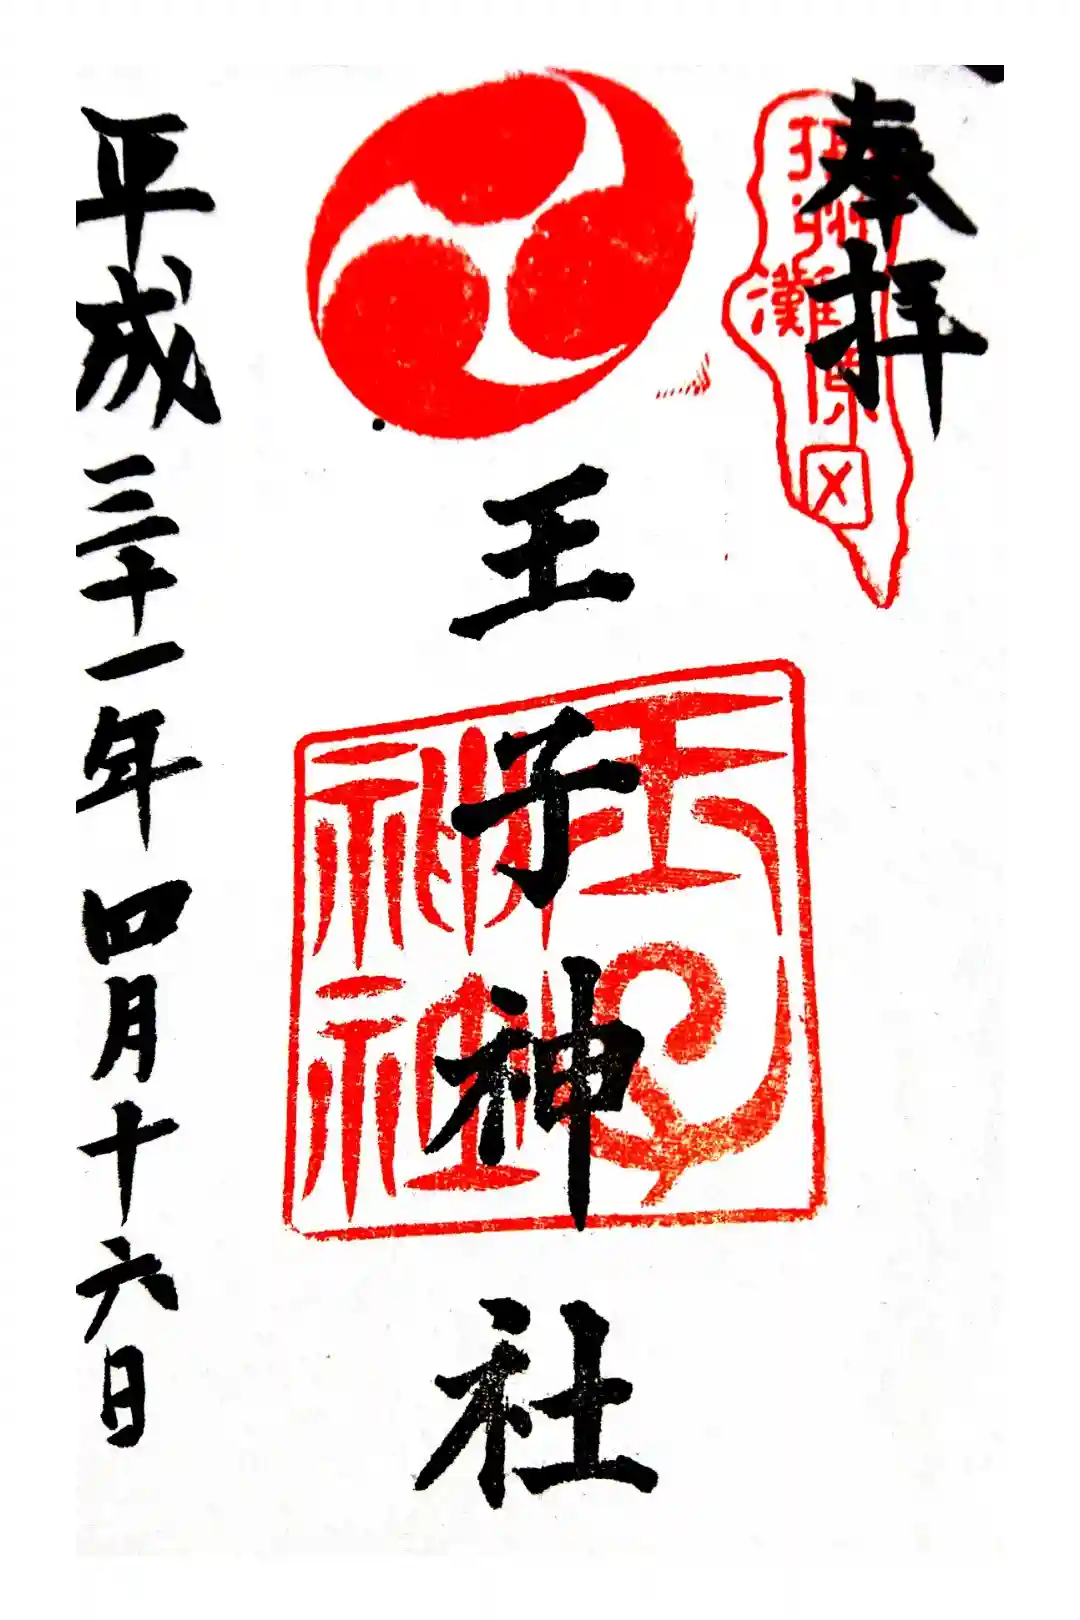 奉拝
王子神社
平成三十一年四月十六日
王子
神社